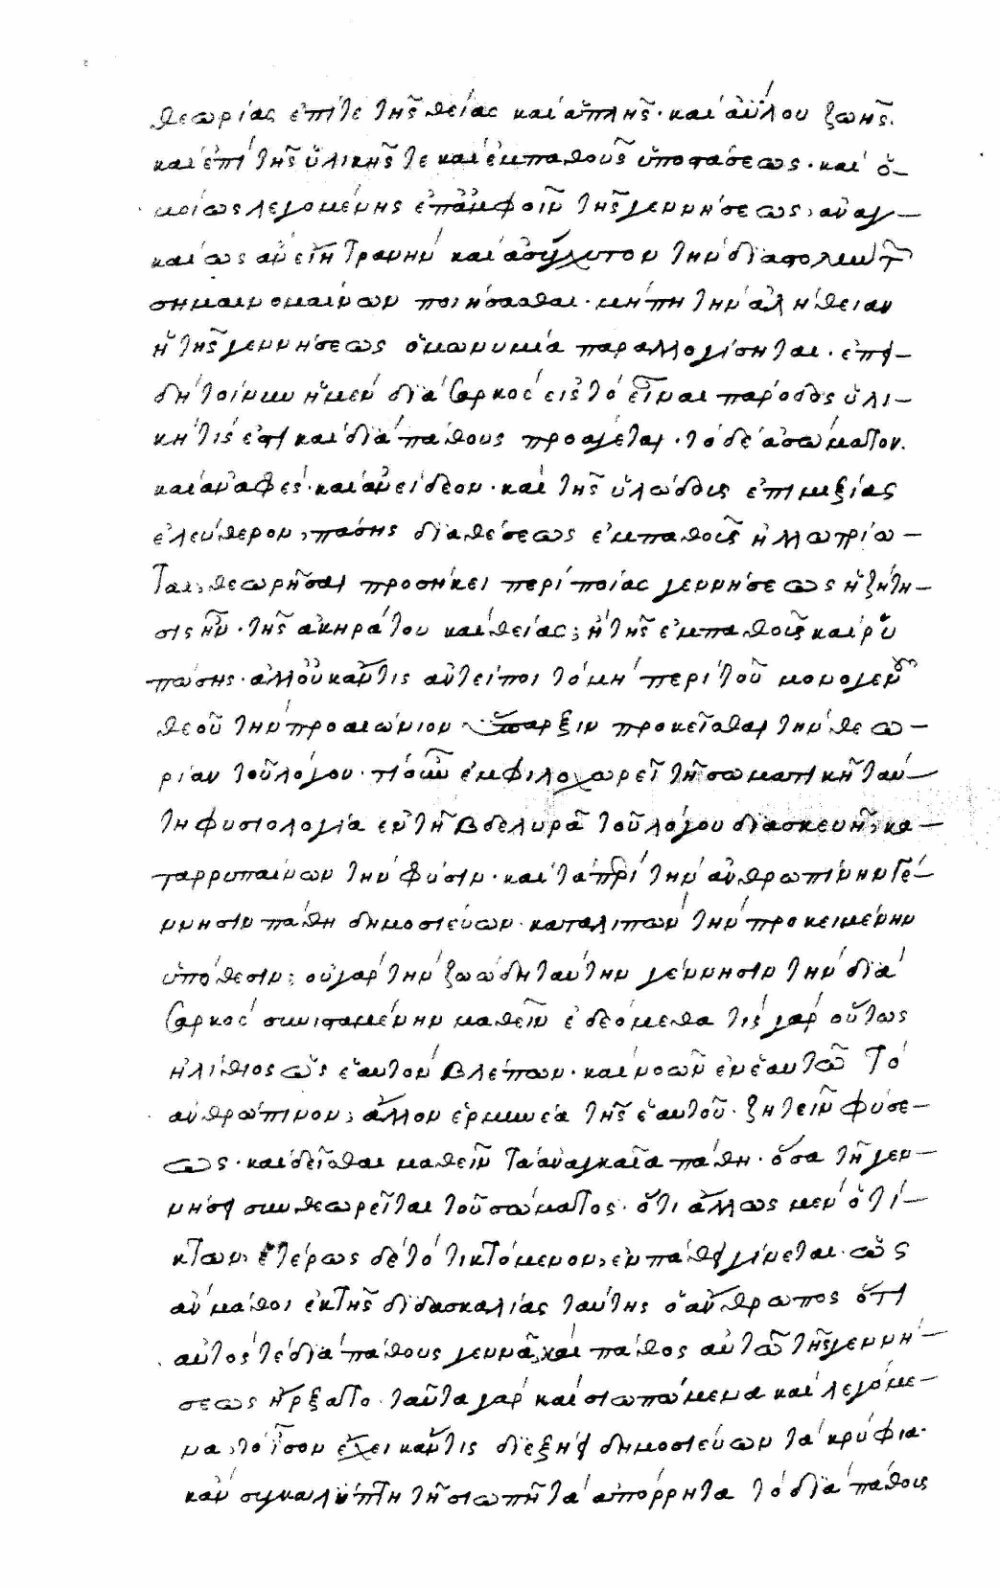 θεωρίας ἐπί τε τῆς θείας καὶ ἁπλῆς· καὶ ἀΰλου ζωῆς.
καὶ ἐπὶ τῆς ὑλικῆς τε καὶ ἐμπαθοῦς ὑποστάσεως· καὶ ὁ-
μοίως λεγομένης ἐπ' ἀμφοῖν τῆς γεννήσεως, ἀναγ-
καίως ἂν εἴη τρανὴν καὶ ἀσύγχυτον τὴν διαστολὴν τῶν
σημαινομένων ποιήσασθαι· μή πη τὴν ἀλήθειαν
ἡ τῆς γεννήσεως ὁμωνυμία παραλλογίσηται· ἐπει-
δὴ τοίνυν ἡ μὲν διὰ σαρκὸς εἰς τὸ εἶναι πάροδος ὑλι-
κή τίς ἐστι καὶ διὰ πάθους προάγεται· τὸ δὲ ἀσώματον.
καὶ ἀναφές· καὶ ἀνείδεον· καὶ τῆς ὑλώδους ἐπιμιξίας
ἐλεύθερον, πάσης διαθέσεως ἐμπαθοῦς ἠλλωτρίω-
ται, θεωρῆσαι προσήκει περὶ ποίας γεννήσεως ἡ ζήτη-
σις ἦν· τῆς ἀκηράτου καὶ θείας; ἢ τῆς ἐμπαθοῦς καὶ ῥυ
πώσης· ἀλλ' οὐκ ἄν τις ἀντείποι τὸ μὴ περὶ τοῦ μονογενοῦς
θεοῦ τὴν προαιώνιον ὕπαρξιν προκεῖσθαι τὴν θεω-
ρίαν τοῦ λόγου· τί οὖν ἐμφιλοχωρεῖ τῇ σωματικῇ ταύ-
τῃ φυσιολογίᾳ ἐν τῇ βδελυρᾷ τοῦ λόγου διασκευῇ, κα-
ταρρυπαίνων τὴν φύσιν· καὶ τὰ περὶ τὴν ἀνθρωπίνην γέ-
ννησιν πάθη δημοσιεύων· καταλιπὼν τὴν προκειμένην
ὑπόθεσιν; οὐ γὰρ τὴν ζωώδη ταύτην γέννησιν τὴν διὰ
σαρκὸς συνισταμένην μαθεῖν ἐδεόμεθα τίς γὰρ οὕτως
ἠλίθιος ὡς ἑαυτὸν βλέπων· καὶ νοῶν ἐν ἑαυτῶ τὸ
ἀνθρώπινον; ἄλλον ἑρμηνέα τῆς ἑαυτοῦ· ζητεῖν φύσε-
ως· καὶ δεῖσθαι μαθεῖν τὰ ἀναγκαῖα πάθη· ὅσα τῇ γεν-
νήσει συνθεωρεῖται τοῦ σώματος· ὅτι ἄλλως μὲν ὁ τί-
κτων, ἑτέρως δὲ τὸ τικτόμενον, ἐν πάθει γίνεται· ὡς
ἂν μάθοι ἐκ τῆς διδασκαλίας ταύτης ὁ ἄνθρωπος ὅτι
αὐτός τε διὰ πάθους γεννᾶ, καὶ πάθος αὐτῶ τῆς γεννή-
σεως ἤρξατο· ταῦτα γὰρ καὶ σιωπώμενα καὶ λεγόμε-
να, τὸ ἶσον ἔχει κἄν τις διεξήει δημοσιεύων τὰ κρύφια·
κἂν συγκαλύπτη τῇ σιωπῇ τὰ ἀπόρρητα τὸ διὰ πάθους